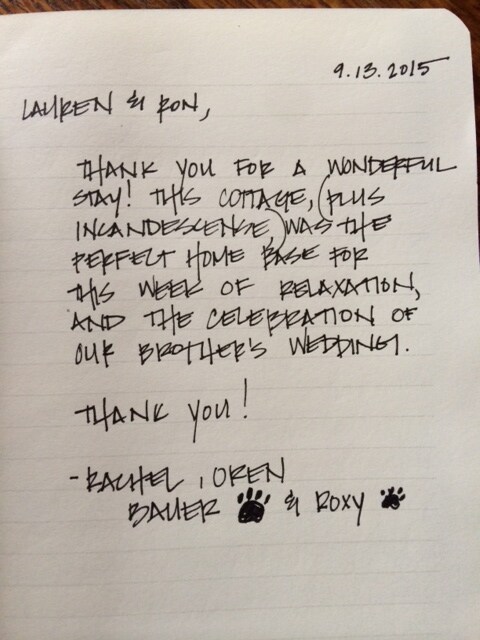 9.13.2015
LAUREN & RON,
THANK YOU FOR A WONDERFUL
STAY! THIS COTTAGE, (PLUS
INCANDESCENSE,) WAS THE
PERFECT HOME BASE FOR
THIS WEEK OF RELAXATION,
AND THE CELEBRATION OF
OUR BROTHER'S WEDDING.
THANK YOU!
-RACHEL, OREN
BAUER & ROXY